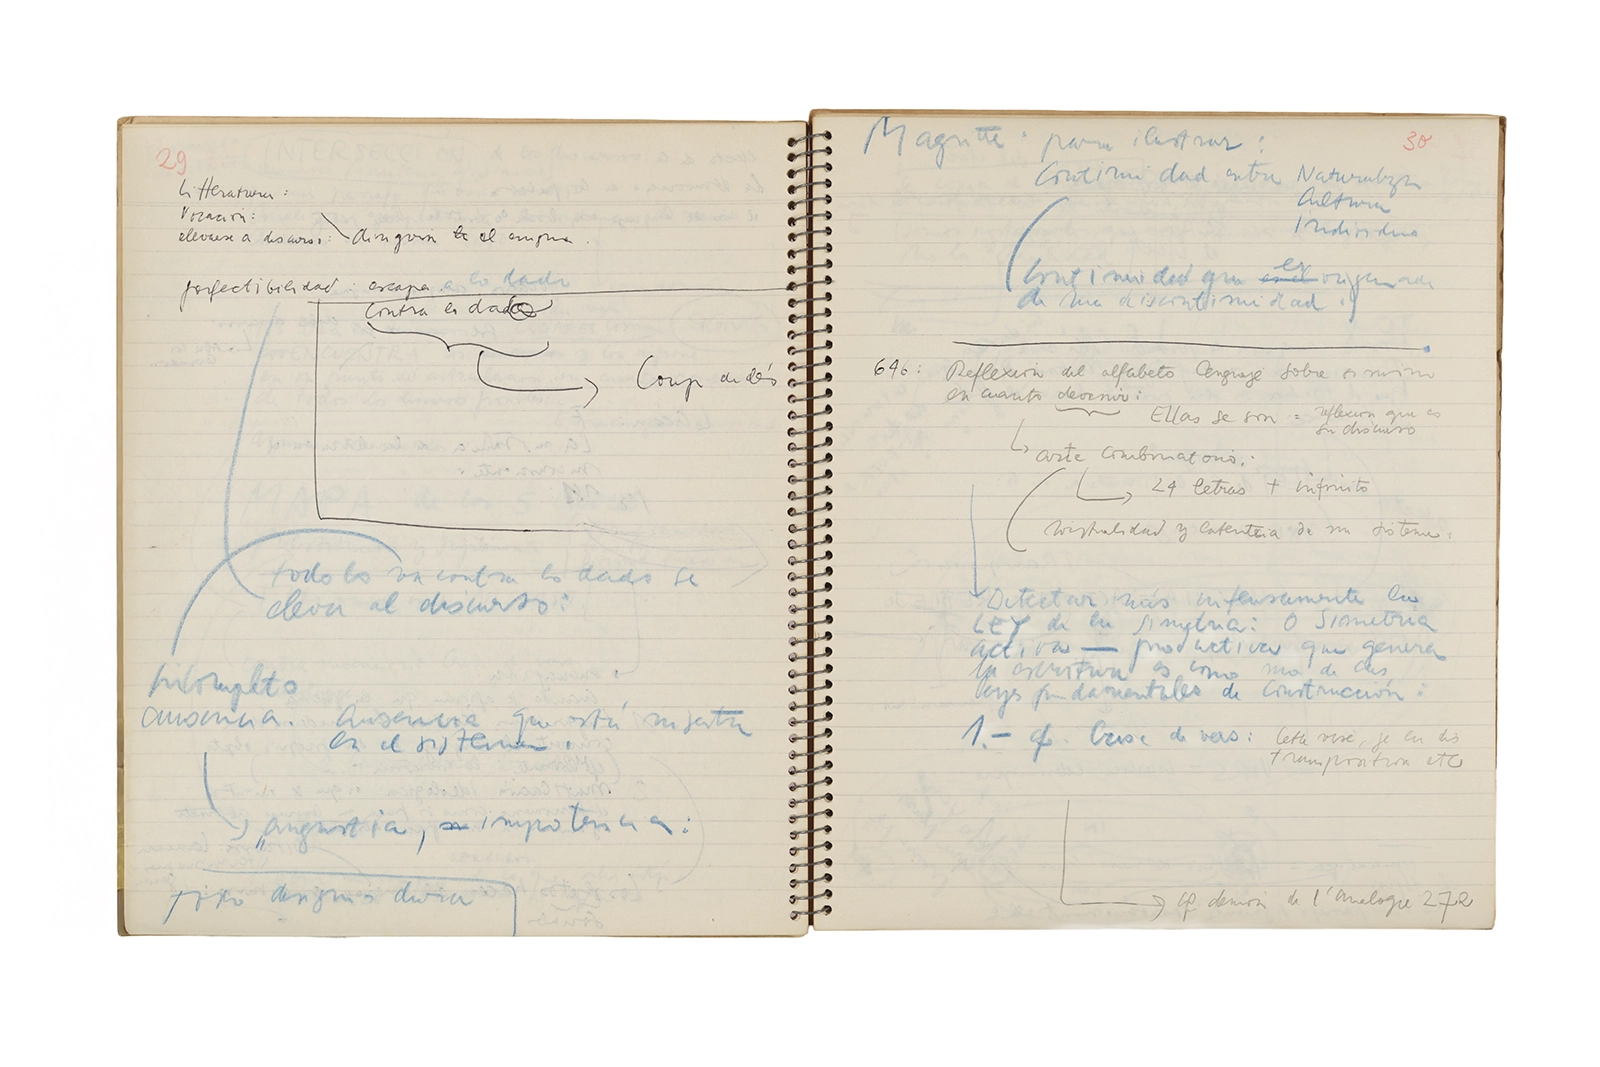 29
Litteratura:
Vocación:
elevarse a discurso: el enigma.
perfectibilidad: escapa a lo dado
contra lo dado
Coup de dés
todo lo va contra lo dado se
eleva al discurso:
Incompleto
ausencia. Ausencia que está inserta
en el sistema.
"angustia, impotencia:
30
Magritte: para ilustrar:
Continuidad entre Naturaleza
Cultura
individuo
Continuidad que es
de una discontinuidad.
646: Reflexión del alfabeto lenguaje sobre si mismo
en cuanto devenir:
Ellas se son = reflexion que es
su discurso
arte combinatorio:
24 letras + infinito
virtualidad y latencia de un sistema.
Detectar más intensamente la
LEY de la simetria: O Simetria
activa — productiva que genera
la escritura es como una de las
leyes fundamentales de construcción:
1.- Crise de vers:
transposition etc
cf demon de l'analogie 272